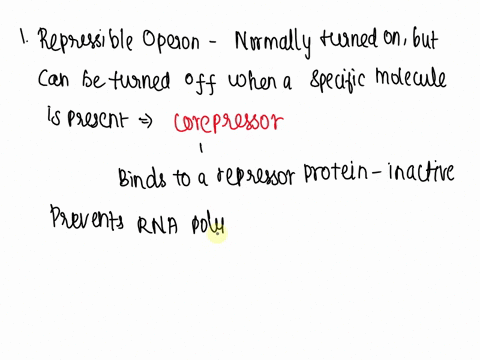 1. Repressible Operon - Normally turned on, but
can be turned off when a specific molecule
is present => corepressor
Binds to a repressor protein - inactive
Prevents RNA poly